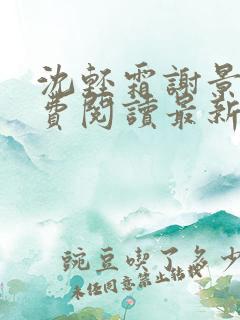 沈輕霜謝景
費閱讀最新
豌豆喫了多少
未經同意禁止轉載